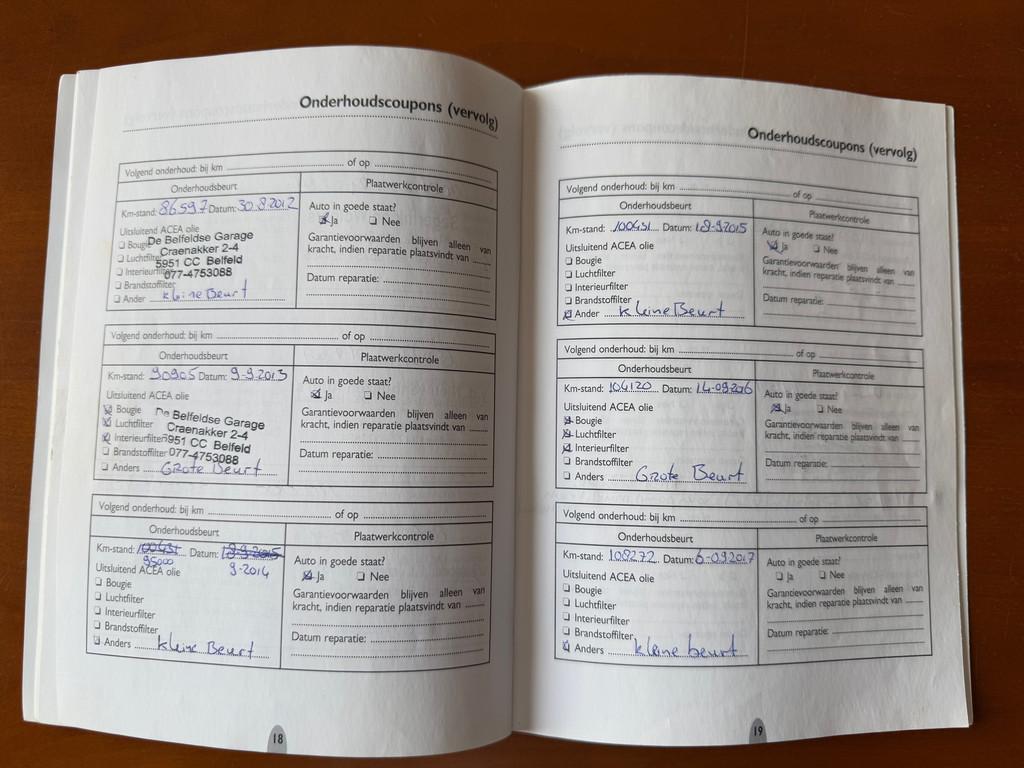 Onderhoudscoupons (vervolg)
Volgend onderhoud: bij km of op
Onderhoudsbeurt Plaatwerkcontrole
Km-stand: 86597 Datum: 30-8-2012 Auto in goede staat?
Ja Nee
Uitsluitend ACEA olie Garantievoorwaarden blijven alleen van
Bougie De Belfeldse Garage kracht, indien reparatie plaatsvindt van
Luchtfilter Craenakker 2-4
Interieurfilter 5951 CC Belfeld
077-4753088 Datum reparatie:
Brandstoffilter
Ander kleine Beurt
Volgend onderhoud: bij km of op
Onderhoudsbeurt Plaatwerkcontrole
Km-stand: 90905 Datum: 9-9-2013 Auto in goede staat?
Uitsluitend ACEA olie Ja Nee
Bougie De Belfeldse Garage Garantievoorwaarden blijven alleen van
Luchtfilter Craenakker 2-4 kracht, indien reparatie plaatsvindt van
Interieurfilter 5951 CC Belfeld
Brandstoffilter 077-4753088 Datum reparatie:
Anders Grote Beurt
Volgend onderhoud: bij km of op
Onderhoudsbeurt Plaatwerkcontrole
Km-stand: 100431 Datum: 18-9-2015 Auto in goede staat?
95000 9-2014
Uitsluitend ACEA olie Ja Nee
Bougie Garantievoorwaarden blijven alleen van
Luchtfilter kracht, indien reparatie plaatsvindt van
Interieurfilter
Brandstoffilter Datum reparatie:
Anders kleine Beurt
18
Onderhoudscoupons (vervolg)
Volgend onderhoud: bij km of op
Onderhoudsbeurt Plaatwerkcontrole
Km-stand: 100431 Datum: 18-9-2015 Auto in goede staat?
Uitsluitend ACEA olie Ja Nee
Bougie Garantievoorwaarden blijven alleen van
Luchtfilter kracht, indien reparatie plaatsvindt van
Interieurfilter
Brandstoffilter Datum reparatie:
Ander kleine Beurt
Volgend onderhoud: bij km of op
Onderhoudsbeurt Plaatwerkcontrole
Km-stand: 104120 Datum: 14-09-2016 Auto in goede staat?
Uitsluitend ACEA olie Ja Nee
Bougie Garantievoorwaarden blijven alleen van
Luchtfilter kracht, indien reparatie plaatsvindt van
Interieurfilter
Brandstoffilter Datum reparatie:
Anders Grote Beurt
Volgend onderhoud: bij km of op
Onderhoudsbeurt Plaatwerkcontrole
Km-stand: 108272 Datum: 6-09-2017 Auto in goede staat?
Uitsluitend ACEA olie Ja Nee
Bougie Garantievoorwaarden blijven alleen van
Luchtfilter kracht, indien reparatie plaatsvindt van
Interieurfilter
Brandstoffilter Datum reparatie:
Anders kleine beurt
19